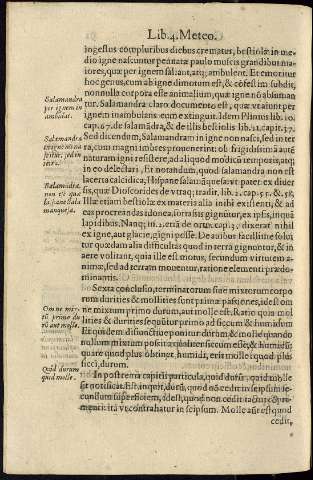 Lib.4. Meteo.
ingestus cõpluribus diebus crematur, bestiolæ in me-
dio igne nascuntur pennatæ paulo muscis grandibus ma-
iores, quæ per ignem saliunt, atq; ambulent. Et emoritur
hoc genus, cum ab igne dimotum est, & cõfestim subdit,
nonnulla corpora esse animalium, quæ igne nõ absuman
tur. Salamandra claro documento est, quæ vt aiunt per
ignem inambulans eum extinguit. Idem Plinius lib. 10.
cap. 67. de salamãdra, & de illis bestiolis lib. 11. capit. 37.
Sed dicendum, Salamandram in igne non nasci, sed in ter
ra, cum magni imbres prouenerint: ob frigidissimã autẽ
naturam igni resistere, ad aliquod modicũ temporis, atq;
in eo delectari. Et notandum, quod salamandra non est
lacerta calcidica, Hispane salamãquesa: vt patet ex diuer
sis, quæ Dioscorides de vtraq; tradit, lib. 2. cap. 55. & 58.
Illæ etiam bestiolæ ex materia alia inibi existenti, & ad
eas procreandas idonea, fornasis gignũtur, ex ipsis, inquã
lapidibus. Nanq; in. 2. etiã de ortu. cap. 3. dixerat nihil
ex igne, aut glacie, gigni posse. De auibus facillime solui
tur quædam alia difficultas quod in terra gignuntur, & in
aere volitant, quia ille est motus, secundum virtutem a-
nimæ, sed ad terram mouentur, ratione elementi prædo-
minantis.
Sexta conclusio, terminatorum siue mixtorum corpo
rum durities & mollities sunt primæ passiones, id est om
ne mixtum primo durum, aut molle est. Ratio quia mol
lities & durities sequũtur primo ad siccum & humidum
Et quidem disiunctiue ponitur durũm, & molle quando
nullum mixtum possit æq̃ solitersiccum esse, & humidũ
quare quod plus obtinet, humidi, erit molle: quod plus
sicci, durum.
In postrema capitis particula, quid durũ, quid molle
sit notificat. Est, inquit, durũ, quod nõ cedit in seipsum se-
cundum superficiem, id est, quod non cedit tactui, & pri-
menti: ita vt contrahatur in seipsum. Molle aũt est quod
cedit,
Salamandra
per ignem in
ambulat.
Salamandra
in igne nõ na
scitur, sed in
terra.
Salamãdra
non est quæ
Omne mix-
tũ primo du
rũ aut molle.
Quid durum
quid molle.